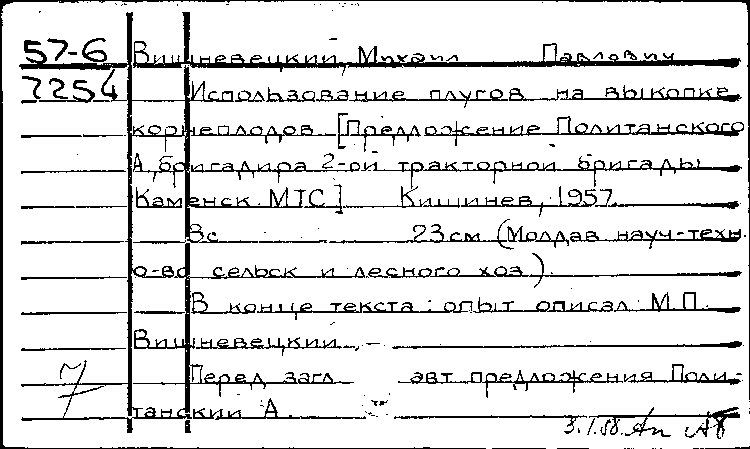 57-6 Вишневецкий, Михаил Павлович
7254 Использование плугов на выкопке
корнеплодов [Предложение Политанского
А, бригадира 2-ой тракторной бригады
Каменск МТС] Кишинев, 1957
3с 23см (Молдав науч-техн
о-во сельск и лесного хоз.)
В конце текста: опыт описал М.П.
Вишневецкий.-
7 Перед загл авт предложения Поли-
танский А.
3.I.58